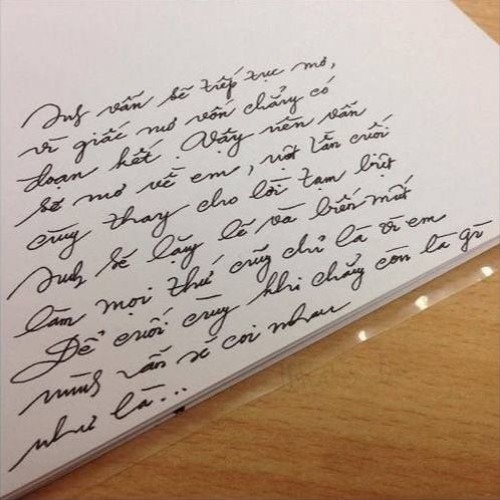 Anh vẫn sẽ tiếp tục mơ,
vì giấc mơ vốn chẳng có
đoạn kết. Vậy nên vẫn
sẽ mơ về em, một lần cuối
cùng thay cho lời tạm biệt
Anh sẽ lặng lẽ và biến mất
làm mọi thứ cũng chỉ là vì em
Để cuối cùng khi chẳng còn là gì
mình vẫn sẽ coi nhau
như là...